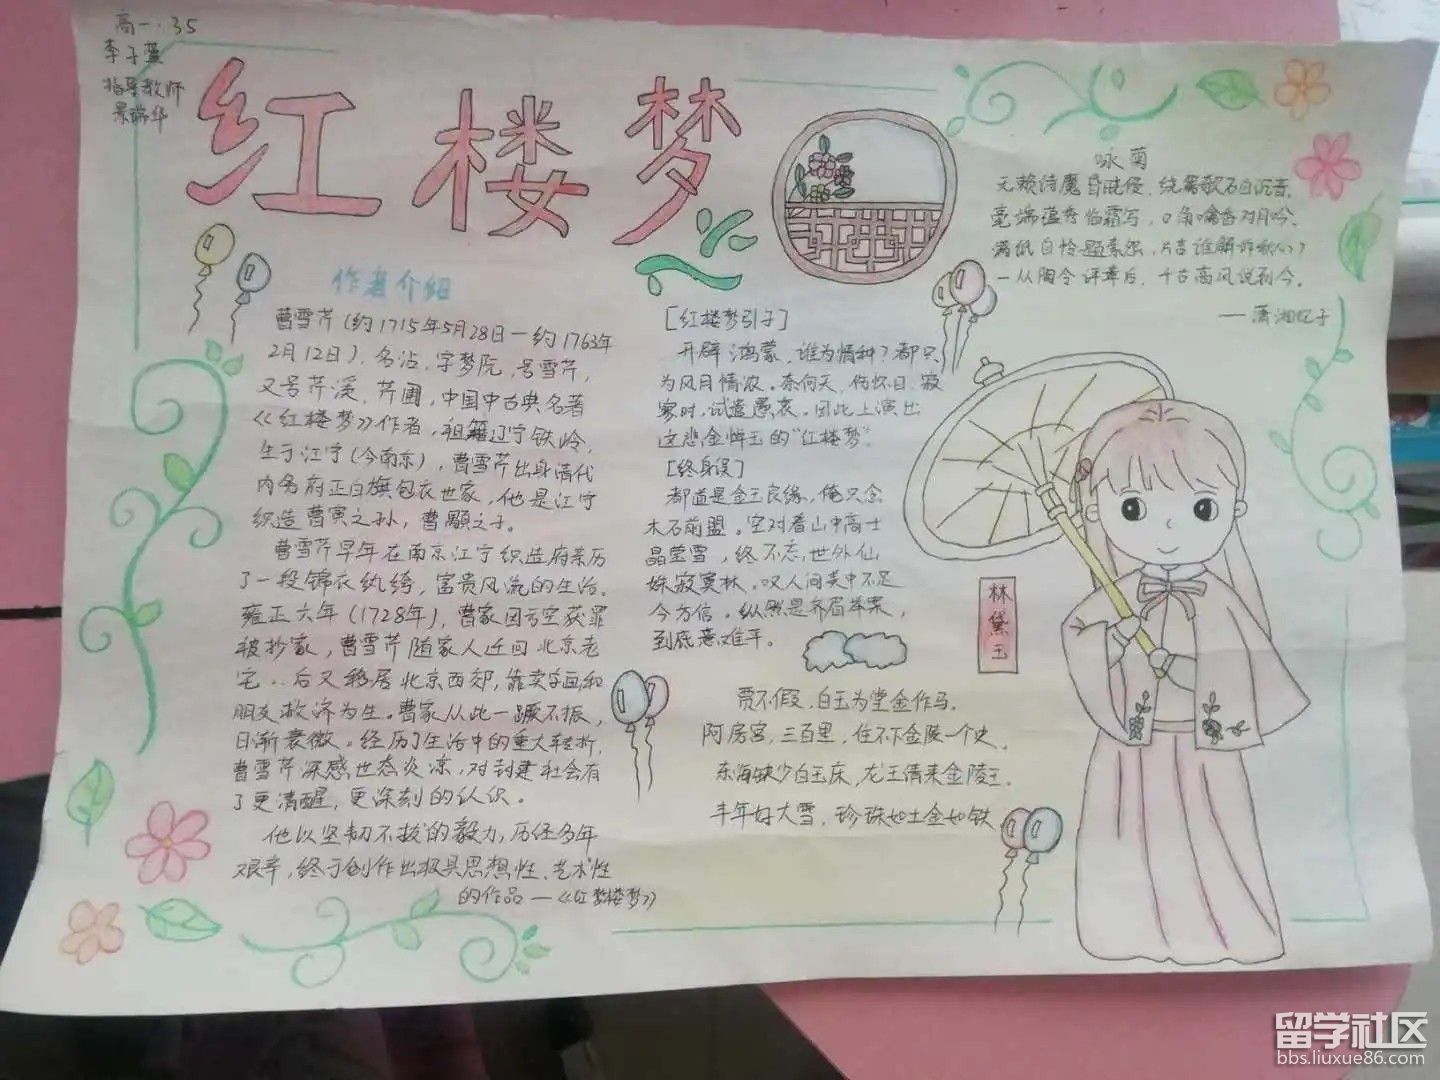 高一.35
李子萱
指导教师
景瑞华
红楼梦
作者介绍
曹雪芹(约1715年5月28日—约1763年
2月12日),名沾,字梦阮,号雪芹,
又号芹溪,芹圃,中国中古典名著
《红楼梦》作者,祖籍辽宁铁岭,
生于江宁(今南京),曹雪芹出身清代
内务府正白旗包衣世家,他是江宁
织造曹寅之孙,曹顒之子。
曹雪芹早年在南京江宁织造府亲历
了一段锦衣纨绔,富贵风流的生活。
雍正六年(1728年),曹家因亏空获罪
被抄家,曹雪芹随家人迁回北京老
宅..后又移居北京西郊,靠卖字画和
朋友救济为生。曹家从此一蹶不振,
日渐衰微。经历了生活中的重大转折,
曹雪芹深感世态炎凉,对封建社会有
了更清醒,更深刻的认识。
他以坚韧不拔的毅力,历经多年
艰辛,终于创作出极具思想性、艺术性
的作品—《红楼梦》
[红楼梦引子]
开辟鸿蒙,谁为情种?都只
为风月情浓。奈何天,伤怀日,寂
寥时,试遣愚衷。因此上演出
这悲金悼玉的"红楼梦"。
[终身误]
都道是金玉良缘,俺只念
木石前盟。空对着山中高士
晶莹雪,终不忘,世外仙
姝寂寞林。叹人间美中不足
今方信。纵然是齐眉举案,
到底意难平。
贾不假,白玉为堂金作马。
阿房宫,三百里,住不下金陵一个史。
东海缺少白玉床,龙王请来金陵王。
丰年好大雪,珍珠如土金如铁
咏菊
无赖诗魔昏晓侵,绕篱欹石自沉音。
毫端蕴秀临霜写,口角噙香对月吟。
满纸自怜题素怨,片言谁解诉秋心?
一从陶令评章后,千古高风说到今。
——潇湘妃子
林黛玉
留学社区
bbs.liuxue86.com